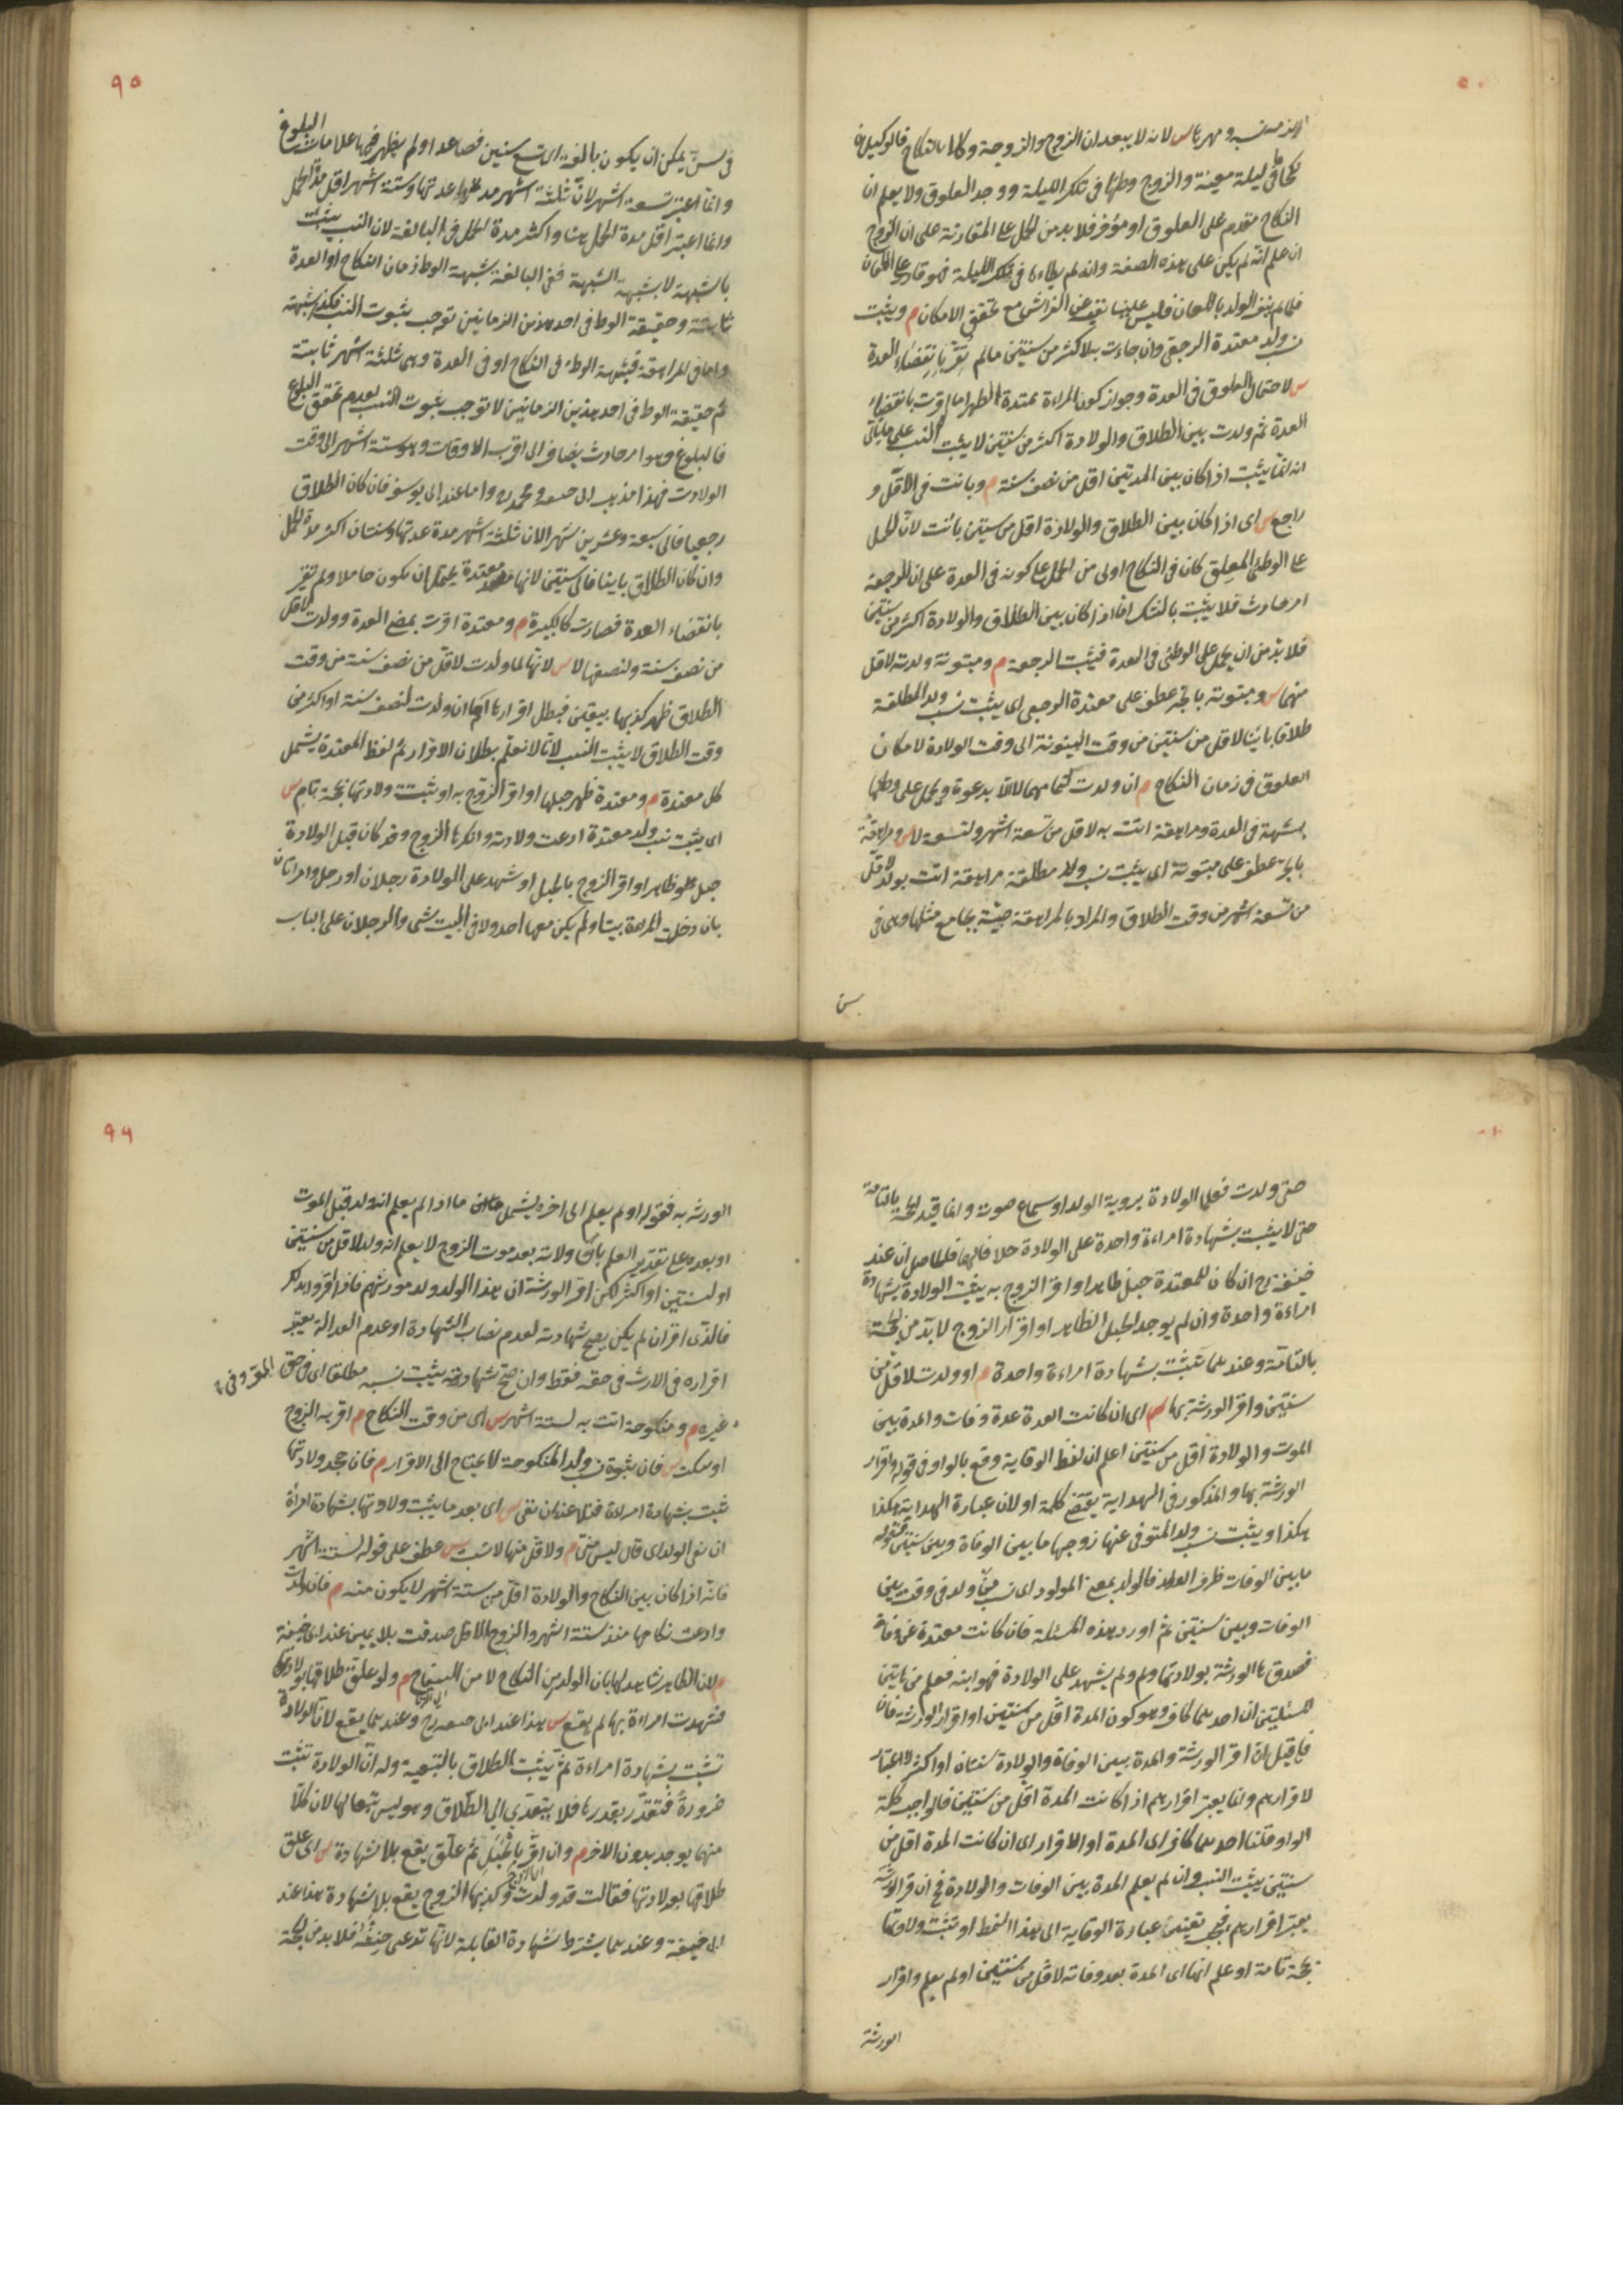 لزمه نسبه ومهرها س لانه لا يبعد ان الزوج والزوجة وكلا بالنكاح فالوكيلان
نكحا في ليلة معينة والزوج وطئها في تلك الليلة ووجد العلوق ولا يعلم ان
النكاح مقدم على العلوق او مؤخر فلا بد من الحمل على المقارنة على ان الزوج
ان علم انه لم يكن على هذه الصفة وانه لم يطأها في تلك الليلة فهو قادر على اللعان
فلما لم ينف الولد باللعان فليس علينا نفيه عن الفراش مع تحقق الامكان م ويثبت
نسب ولد معتدة الرجعي وان جاءت به لاكثر من سنتين ما لم تقر بانقضاء العدة
س لاحتمال العلوق في العدة وجواز كون المراءة ممتدة الطهر اما اقرت بانقضاء
العدة ثم ولدت بين الطلاق والولادة اكثر من سنتين لا يثبت النسب على ما ياتي
انه انما يثبت اذا كان بين المدتين اقل من نصف سنة م وبانت في الاقل و
راجع س اى اذا كان بين الطلاق والولادة اقل من سنتين بانت لان الحمل
على الوطئ المعلق كان في النكاح اولى من الحمل على كونه في العدة على ان الرجعة
امر حادث فلا يثبت بالشك اما اذا كان بين الطلاق والولادة اكثر من سنتين
فلا بد من ان يحمل على الوطئ في العدة فيثبت الرجعة م ومبتوتة ولدته لاقل
منهما س ومبتوتة بالجر عطف على معتدة الرجعي اى يثبت نسب ولد المطلقة
طلاقا بائنا لاقل من سنتين من وقت البينونة الى وقت الولادة لامكان
العلوق في زمان النكاح م ان ولدت لتمامهما لا الا بدعوة ويحمل على وطئها
بشبهة في العدة ومراهقة اتت به لاقل من تسعة اشهر ولتسعة لا س ومراهقة
بالجر عطف على مبتوتة اى يثبت نسب ولد مطلقة مراهقة اتت بولد لاقل
من تسعة اشهر من وقت الطلاق والمراد بالمراهقة صبية يجامع مثلها وهى في
سن
٩٥
في سن يمكن ان يكون بالغة اى تسع سنين فصاعدا ولم يظهر فيها علامات البلوغ
وانما اعتبر تسعة اشهر لان ثلثة اشهر مدة عدتها وستة اشهر اقل مدة الحمل
وانما اعتبر اقل مدة الحمل هنا واكثر مدة الحمل في البالغة لان النسب يثبت
بالشبهة لا بشبهة الشبهة ففي البالغة شبهة الوطئ زمان النكاح او العدة
ثابتة وحقيقة الوطئ في احد هذين الزمانين توجب ثبوت النسب فكذا شبهته
واما في المراهقة فشبهة الوطئ في النكاح او في العدة وهى ثلثة اشهر ثابتة
ثم حقيقة الوطئ في احد هذين الزمانين لا توجب ثبوت النسب لعدم تحقق البلوغ
فالبلوغ وهو امر حادث يضاف الى اقرب الاوقات وهو ستة اشهر الى وقت
الولادت فهذا مذهب ابي حنيفة ومحمد رح واما عند ابي يوسف فان كان الطلاق
رجعيا فالى سبعة وعشرين شهرا لان ثلثة اشهر مدة عدتها وسنتان اكثر مدة الحمل
وان كان الطلاق باينا فالى سنتين لانها معتدة يحتمل ان يكون حاملا ولم تقر
بانقضاء العدة فصارت كالكبيرة م ومعتدة اقرت بمضي العدة وولدت لاقل
من نصف سنة ولنصفها لا س لانها لما ولدت لاقل من نصف سنة من وقت
الطلاق ظهر كذبها بيقين فبطل اقرارها اما ان ولدت لنصف سنة او اكثر من
وقت الطلاق لا يثبت النسب لانا لا نعلم بطلان الاقرار ثم لفظ المعتدة يشمل
كل معتدة م ومعتدة ظهر حبلها او اقر الزوج به او يثبت ولادتها بحجة تامة س
اى يثبت نسب ولد معتدة ادعت ولادته وانكرها الزوج وقد كان قبل الولادة
حبل ظاهر او اقر الزوج بالحبل او شهد على الولادة رجلان او رجل وامراتان
بان دخلت المراءة بيتا ولم يكن معها احد ولا في البيت شى والرجلان على الباب
حتى ولدت فعلما الولادة بروية الولد او سماع صوته وانما قيد الحجة بالتامة
حتى لا يثبت بشهادة امراءة واحدة على الولادة خلافا لهما فالحاصل ان عند ابي
حنيفة رح ان كان للمعتدة حبل ظاهر او اقر الزوج به يثبت الولادة بشهادة
امراءة واحدة وان لم يوجد الحبل الظاهر او اقرار الزوج لا بد من الحجة
بالتامة وعندهما تثبت بشهادة امراءة واحدة م او ولدت لاقل من
سنتين واقر الورثة بها س اى ان كانت العدة عدة وفات والمدة بين
الموت والولادة اقل من سنتين اعلم ان لفظ الوقاية وقع بالواو في قوله واقرار
الورثة بها والمذكور في الهداية يقتضي كلمة او لان عبارة الهداية هكذا
هكذا ويثبت نسب ولد المتوفى عنها زوجها ما بين الوفاة وبين سنتين فقوله
ما بين الوفات ظرف الولد فالولد بمعنى المولود اى نسب من ولد في وقت بين
الوفات وبين سنتين ثم اورد هذه المسئلة فان كانت معتدة عن وفاة
فصدقها الورثة بولادتها ولم ولم يشهد على الولادة فهو ابنه فعلم من هاتين
المسئلتين ان احدهما كاف وهو كون المدة اقل من سنتين او اقرار الورثة فان
فان قيل ان اقر الورثة والمدة بين الوفاة والولادة سنتان او اكثر لا اعتبار
لاقرارهم وانما يعتبر اقرارهم اذا كانت المدة اقل من سنتين فالواجب كلمة
الواو قلنا احدهما كاف اى المدة او الاقرار اى ان كانت المدة اقل من
سنتين يثبت النسب وان لم يعلم المدة بين الوفات والولادة فح ان اقر الورثة
يعتبر اقرارهم فيجب تغيير عبارة الوقاية الى هذا النمط او تثبت ولادتها
بحجة تامة او علم انها اى المدة بعد وفاته لاقل من سنتين او لم يعلم واقرار
الورثة
٩٦
الورثه به فقوله او لم يعلم الى اخره يشمل ما اذا لم يعلم انه ولد قبل الموت
او بعده وعلى تقدير العلم بان ولادته بعد موت الزوج لا يعلم انه ولد لاقل من سنتين
او لسنتين او اكثر لكن اقر الورثة ان هذا الولد ولد مورثهم فاذا اقروا بذلك
فالذى اقر ان لم يكن يصح شهادته لعدم نصاب الشهادة او عدم العدالة يعتبر
اقراره في الارث في حقه فقط وان صح شهادته يثبت نسبه مطلقا اى في حق المقر وفي
غيره م ومنكوحة اتت به لستة اشهر س اى من وقت النكاح م اقر به الزوج
او سكت س فان ثبوت نسب ولد المنكوحة لا يحتاج الى الاقرار م فان جحد ولادتها
ثبت بشهادة امراءة فيلاعن ان نفى س اى بعد ما يثبت ولادتها بشهادة امرأة
ان نفى الولد اى قال ليس مني م ولاقل منها لا يثبت س عطف على قوله لستة اشهر
فانه اذا كان بين النكاح والولادة اقل من ستة اشهر لا يكون منه م فان ولدت
وادعت نكاحها منذ ستة اشهر والزوج الاقل صدقت بلا يمين عند ابي حنيفة
م لان الظاهر شاهد لها بان الولد من النكاح لا من السفاح م ولو علق طلاقها بولادتها
فشهدت امراءة بها لم يقع س هذا عند ابي حنيفة رح وعندهما يقع لان الولادة
تثبت بشهادة امراءة ثم يثبت الطلاق بالتبعية وله ان الولادة تثبت
ضرورة فتقدر بقدرها فلا يتعدى الى الطلاق وهو ليس تبعا لها لان كلا
منهما يوجد بدون الاخر م وان اقر بالحبل ثم علق يقع بلا شهادة س اى علق
طلاقها بولادتها فقالت قد ولدت وكذبها الزوج يقع بلا شهادة هذا عند
ابي حنيفة وعندهما يشترط شهادة القابلة لانها تدعى حنثه فلا بد من الحجة